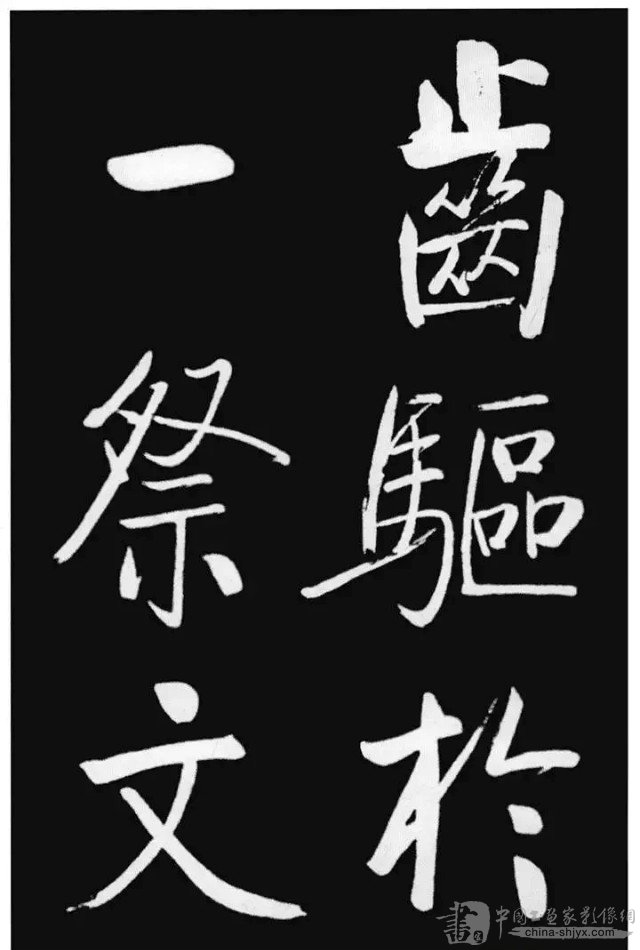 齒驅於
一祭文
中国书画家影像网
china-shjyx.com